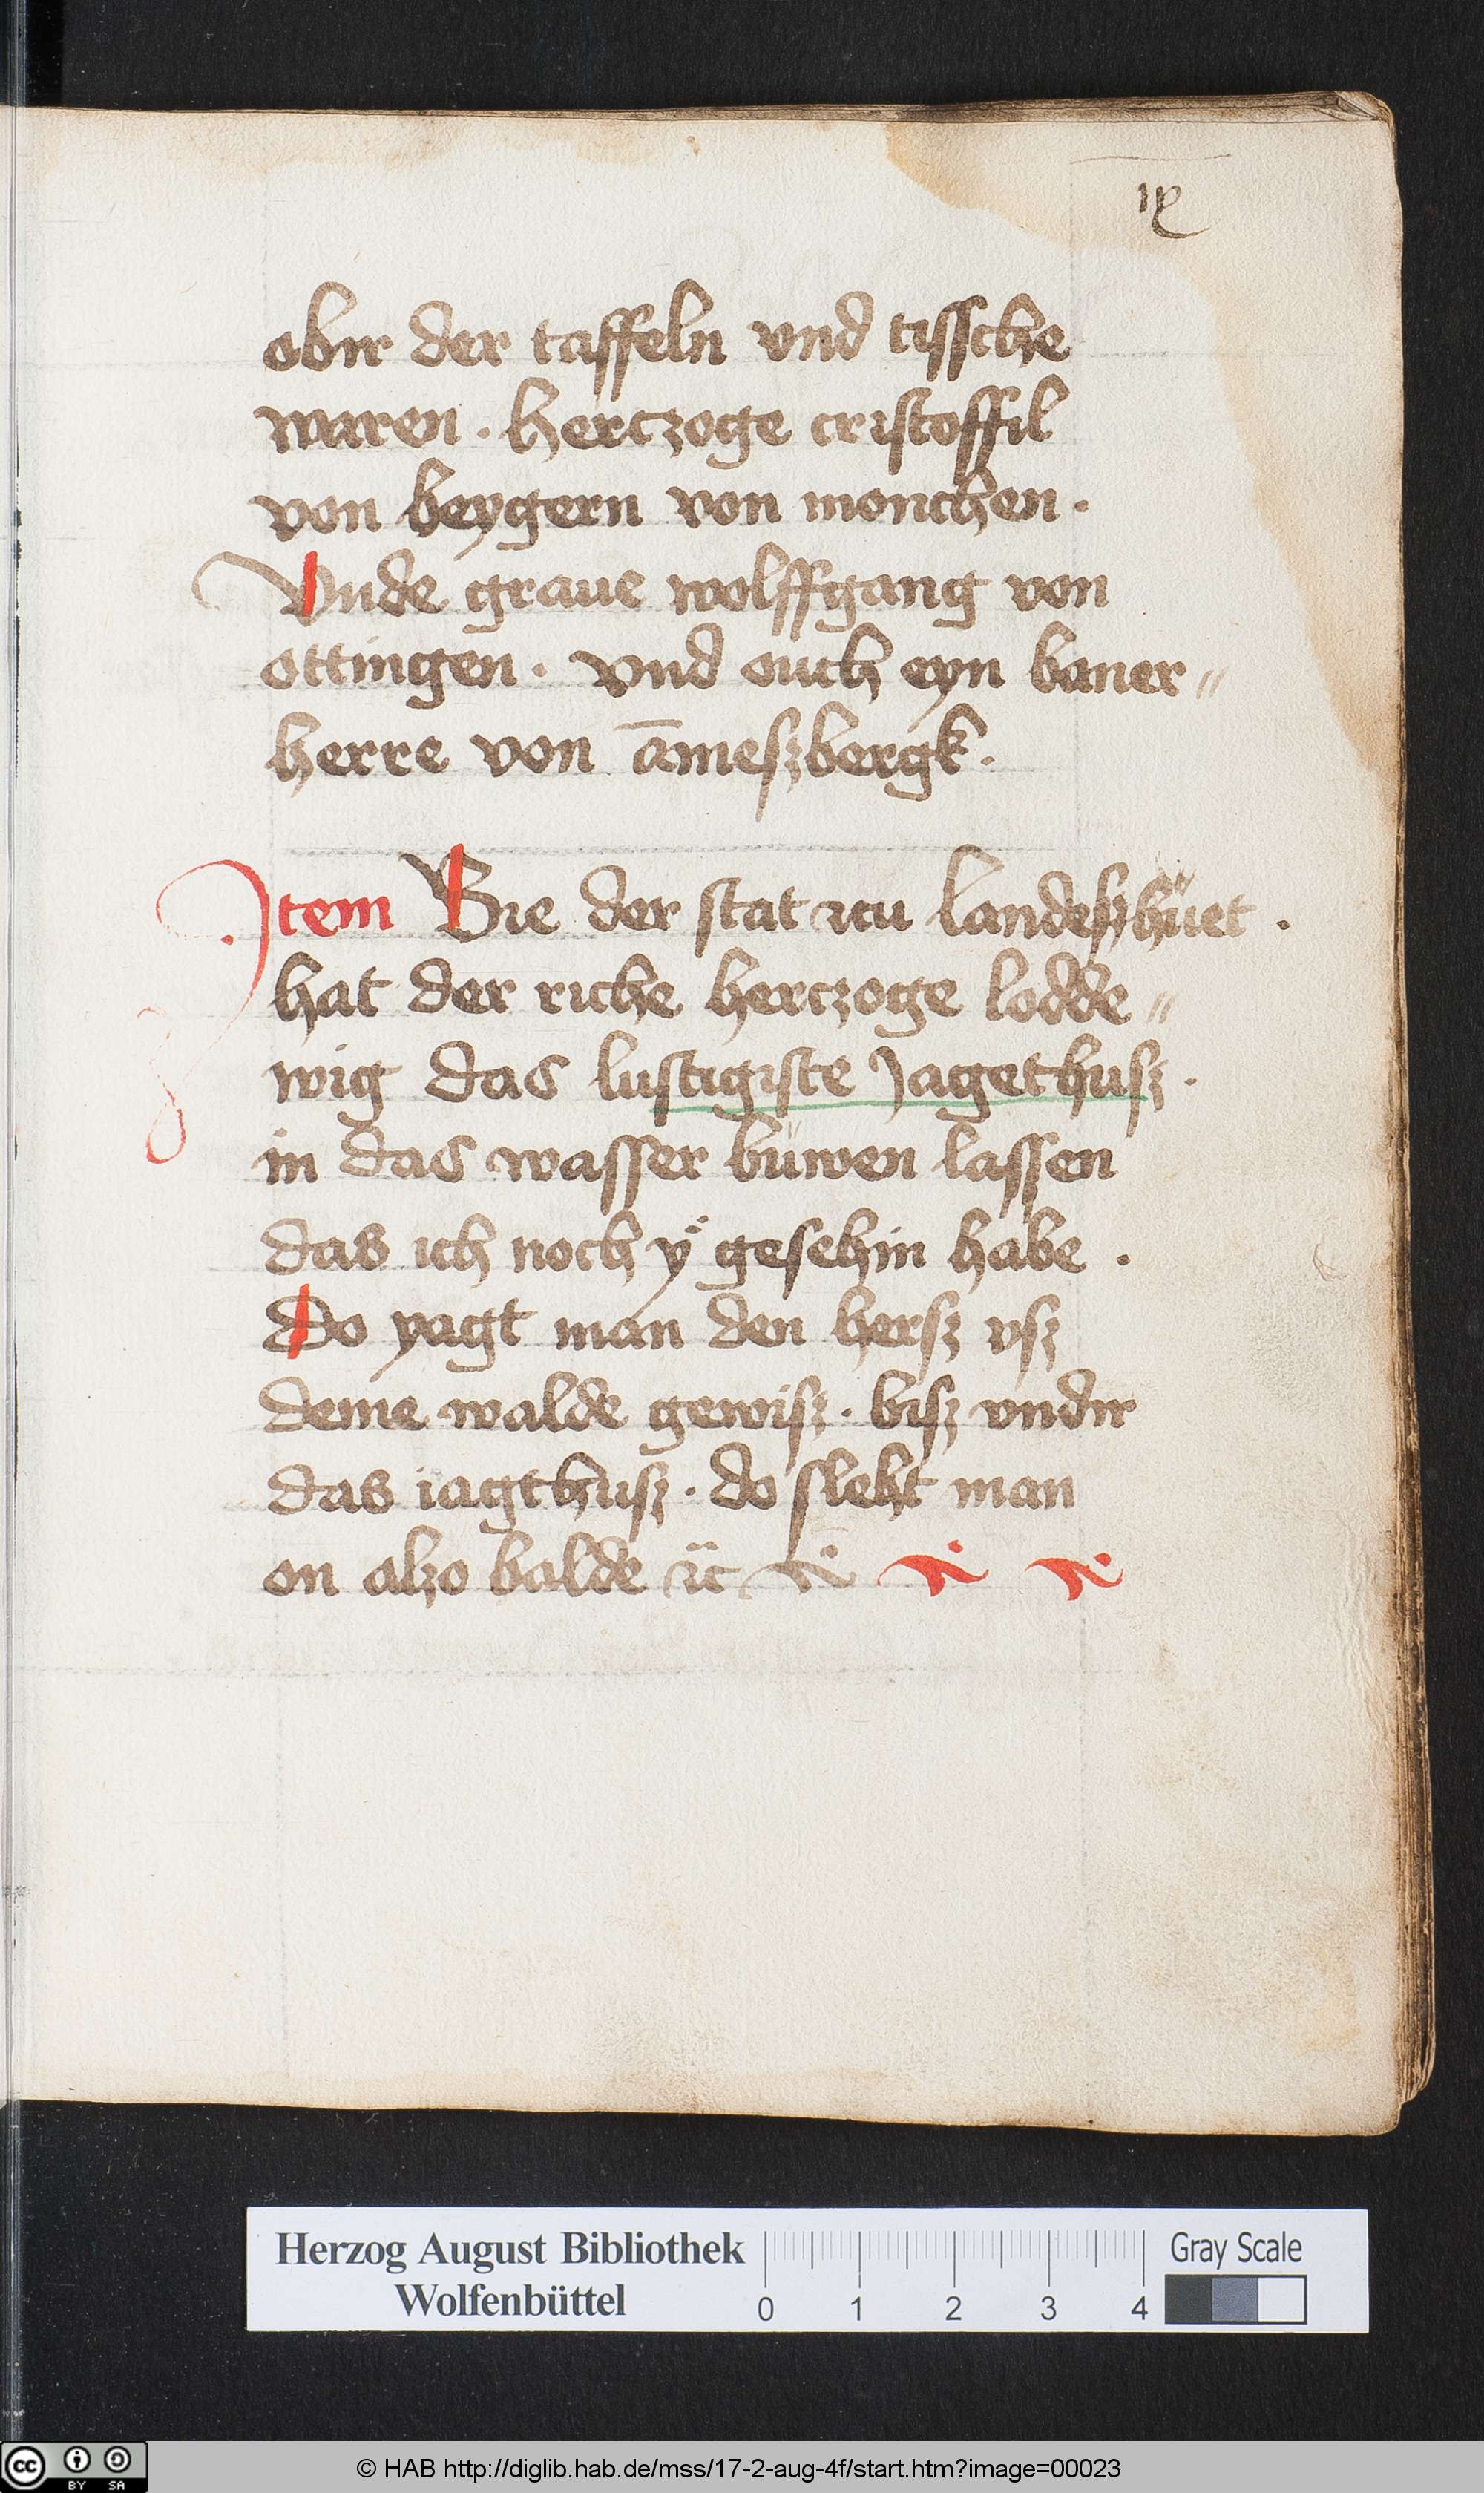 ix
obir der taffeln vnd tissche
waren . herczoge cristoffil
von beygern von monchen .
Vnde graue wolffgang von
ottingen . vnd ouch eyn baner〃
herre von āmeszbergk .
Item Bie der stat zcu landeszhuͤet .
hat der riche herczoge lodde〃
wig das lustigiste Jagethusz .
in das wasser buͤwen lassen
das ich noch ÿ gesehin habe .
Do yagt man den hersz vsz
deme walde gewisz . bisz vndir
das iagthusz . do sleht man
on alzo balde ꝛc̈
Herzog August Bibliothek
Wolfenbüttel
0 1 2 3 4
Gray Scale
cc BY SA
© HAB http://diglib.hab.de/mss/17-2-aug-4f/start.htm?image=00023